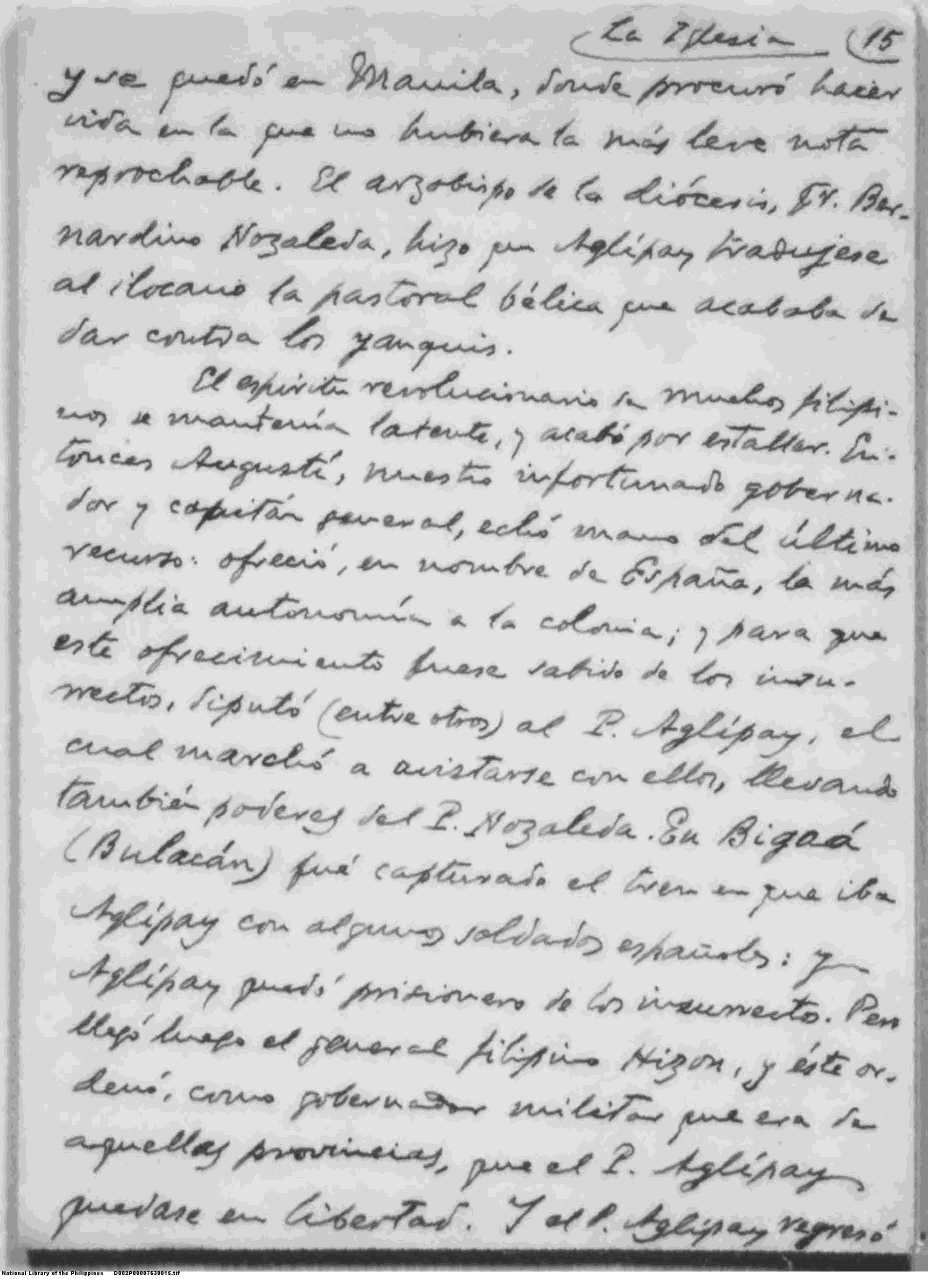 La Iglesia 15
y se quedó en Manila, donde procuró hacer
vida en la que no hubiera la más leve nota
reprochable. El arzobispo de la diócesis, Fr. Ber-
nardino Nozaleda, hizo que Aglípay tradujese
al ilocano la pastoral bélica que acababa de
dar contra los yanquis.
El espíritu revolucionario de muchos filipi-
nos se mantenía latente, y acabó por estallar. En-
tonces Augustí, nuestro infortunado goberna-
dor y capitán general, echó mano del último
recurso: ofreció, en nombre de España, la más
amplia autonomía a la colonia; y para que
este ofrecimiento fuese sabido de los insu-
rrectos, diputó (entre otros) al P. Aglípay, el
cual marchó a avistarse con ellos, llevando
también poderes del P. Nozaleda. En Bigaá
(Bulacán) fué capturado el tren en que iba
Aglípay con algunos soldados españoles: y
Aglípay quedó prisionero de los insurrectos. Pero
llegó luego el general filipino Hizon, y éste or-
denó, como gobernador militar que era de
aquellas provincias, que el P. Aglípay
quedase en libertad. Y el P. Aglípay regresó
National Library of the Philippines D002P00007630015.tif